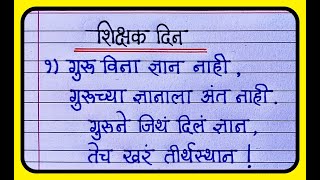 शिक्षक दिन
१) गुरु विना ज्ञान नाही,
गुरुच्या ज्ञानाला अंत नाही.
गुरुने जिथं दिलं ज्ञान,
तेच खरं तीर्थस्थान !